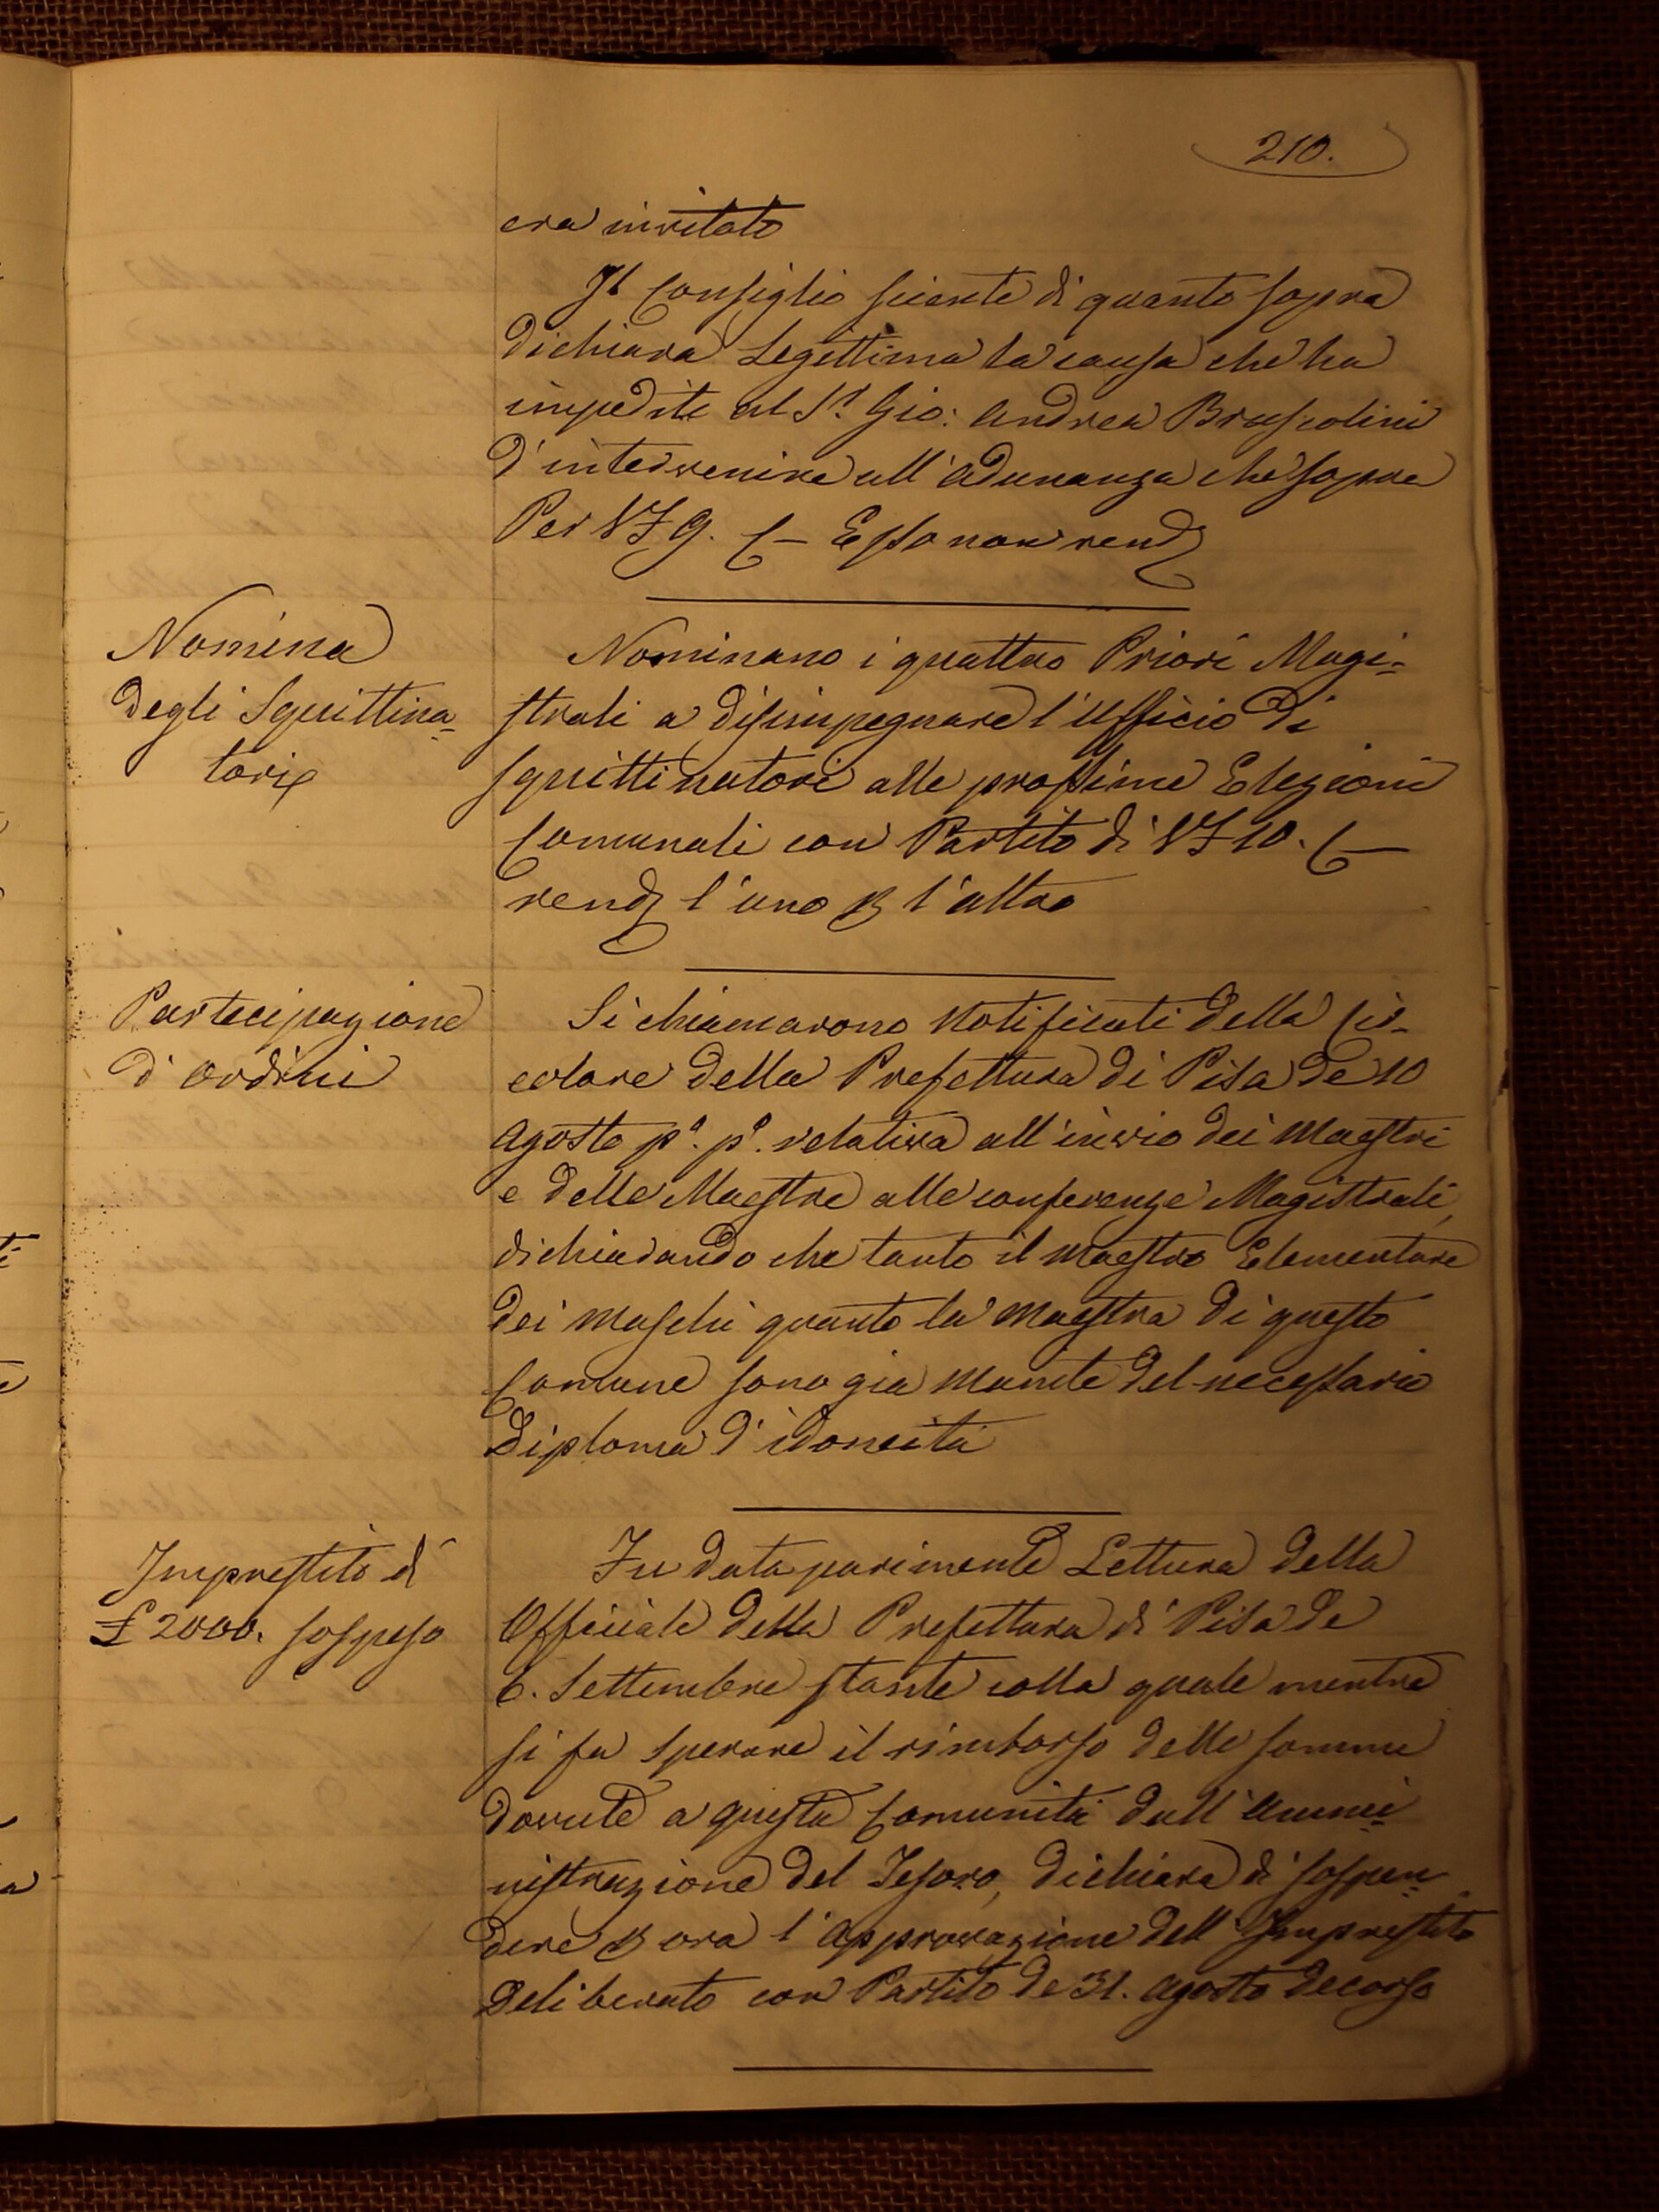 210.
era invitato
Il Consiglio sciente di quanto sopra
dichiara Legittima la causa che ha
impedito al Sr. Gio: Andrea Bruscolini
d'intervenire all'adunanza che sopra
Per VF 9. C— Esso non rend
Nomina
degli Squittina=
tori
Nominano i quattro Priori Magi=
strali a disimpegnare l'Ufficio di
squittinatori alle prossime Elezioni
Comunali con Partito di VF 10. C—
rend l'uno p l'altro
Partecipazione
d'ordini
Si chiamarono Notificati della Cir=
colare della Prefettura di Pisa de 10
Agosto po. po. relativa all'invio dei Maestri
e delle Maestre alle conferenze Magistrali,
dichiarando che tanto il Maestro Elementare
dei Maschi quanto la Maestra di questo
Comune sono gia Munite del necessario
Diploma d'idoneità
Imprestito di
£ 2000. sospeso
Fu data parimente Lettura della
Officiale della Prefettura di Pisa de
6. Settembre stante colla quale mentre
si fa sperare il rimborso delle somme
dovute a questa Comunità dall'Ammi=
nistrazione del Tesoro, dichiara di sospen=
dere p ora l'approvazione dell'Imprestito
Deliberato con Partito de 31. Agosto decorso